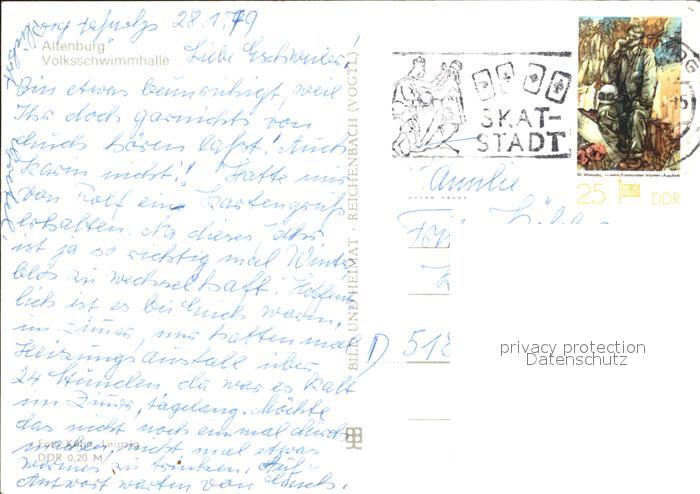 28.1.79
Altenburg
Volksschwimmhalle
Liebe Geschwister!
Bin etwas beunruhigt, weil
Ihr doch garnichts von
Euch hören laßt! Auch
Karin nicht! Hatte mir
von Rolf ein Kartengruß
erhalten. Na dieses Jahr
ist ja so richtig mal Winter
bloß zu wechselhaft! Hoffent-
lich ist es bei Euch warm,
im Zimmer, wir hatten mal
Heizungsausfall über
24 Stunden da war es kalt
im Zimmer, tagelang. Möchte
das nicht noch einmal durch
machen, nicht mal etwas
warmes zu trinken. Auf
Antwort warten von Euch.
Foto Kühn, Leipzig
DDR 0,20 M
BILD UND HEIMAT · REICHENBACH (VOGTL)
SKAT-
STADT
25 DDR
Familie
D 512
privacy protection
Datenschutz